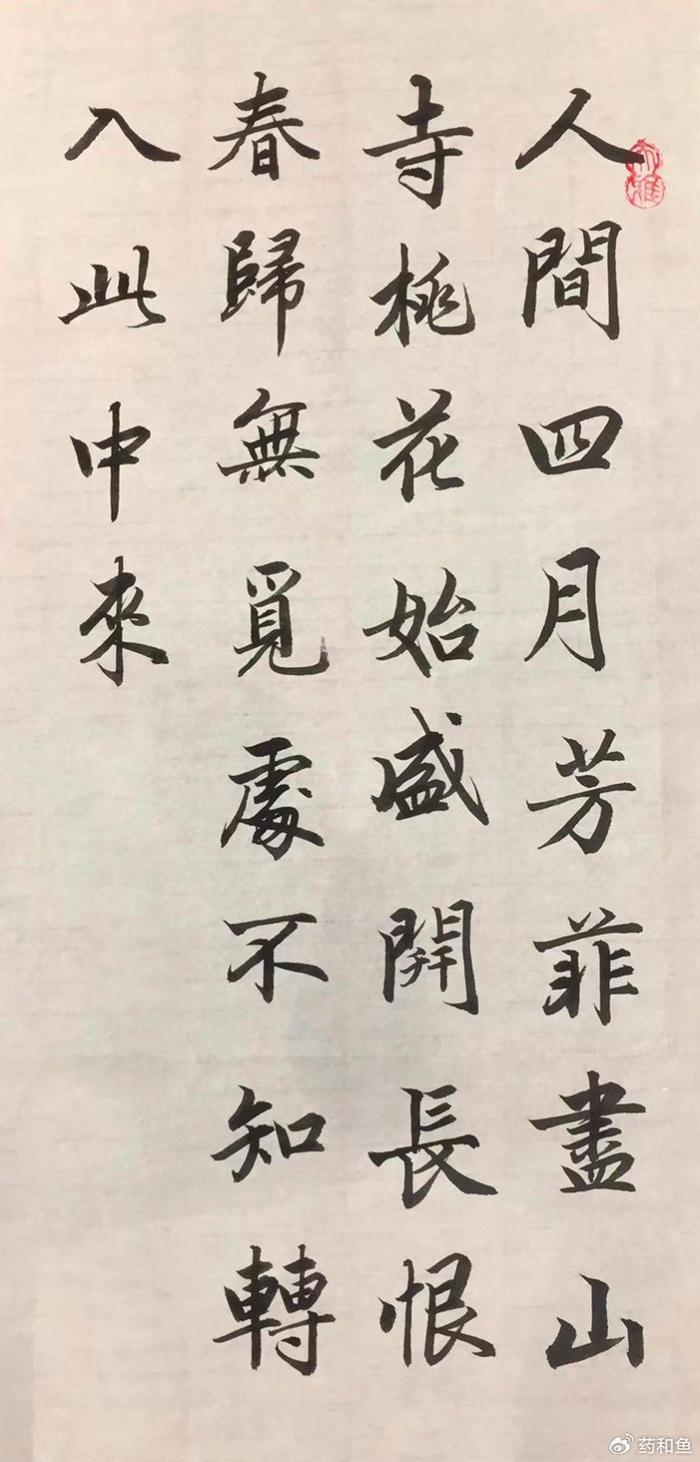 人間四月芳菲盡山
寺桃花始盛開長恨
春歸無覓處不知轉
入此中來
药和鱼